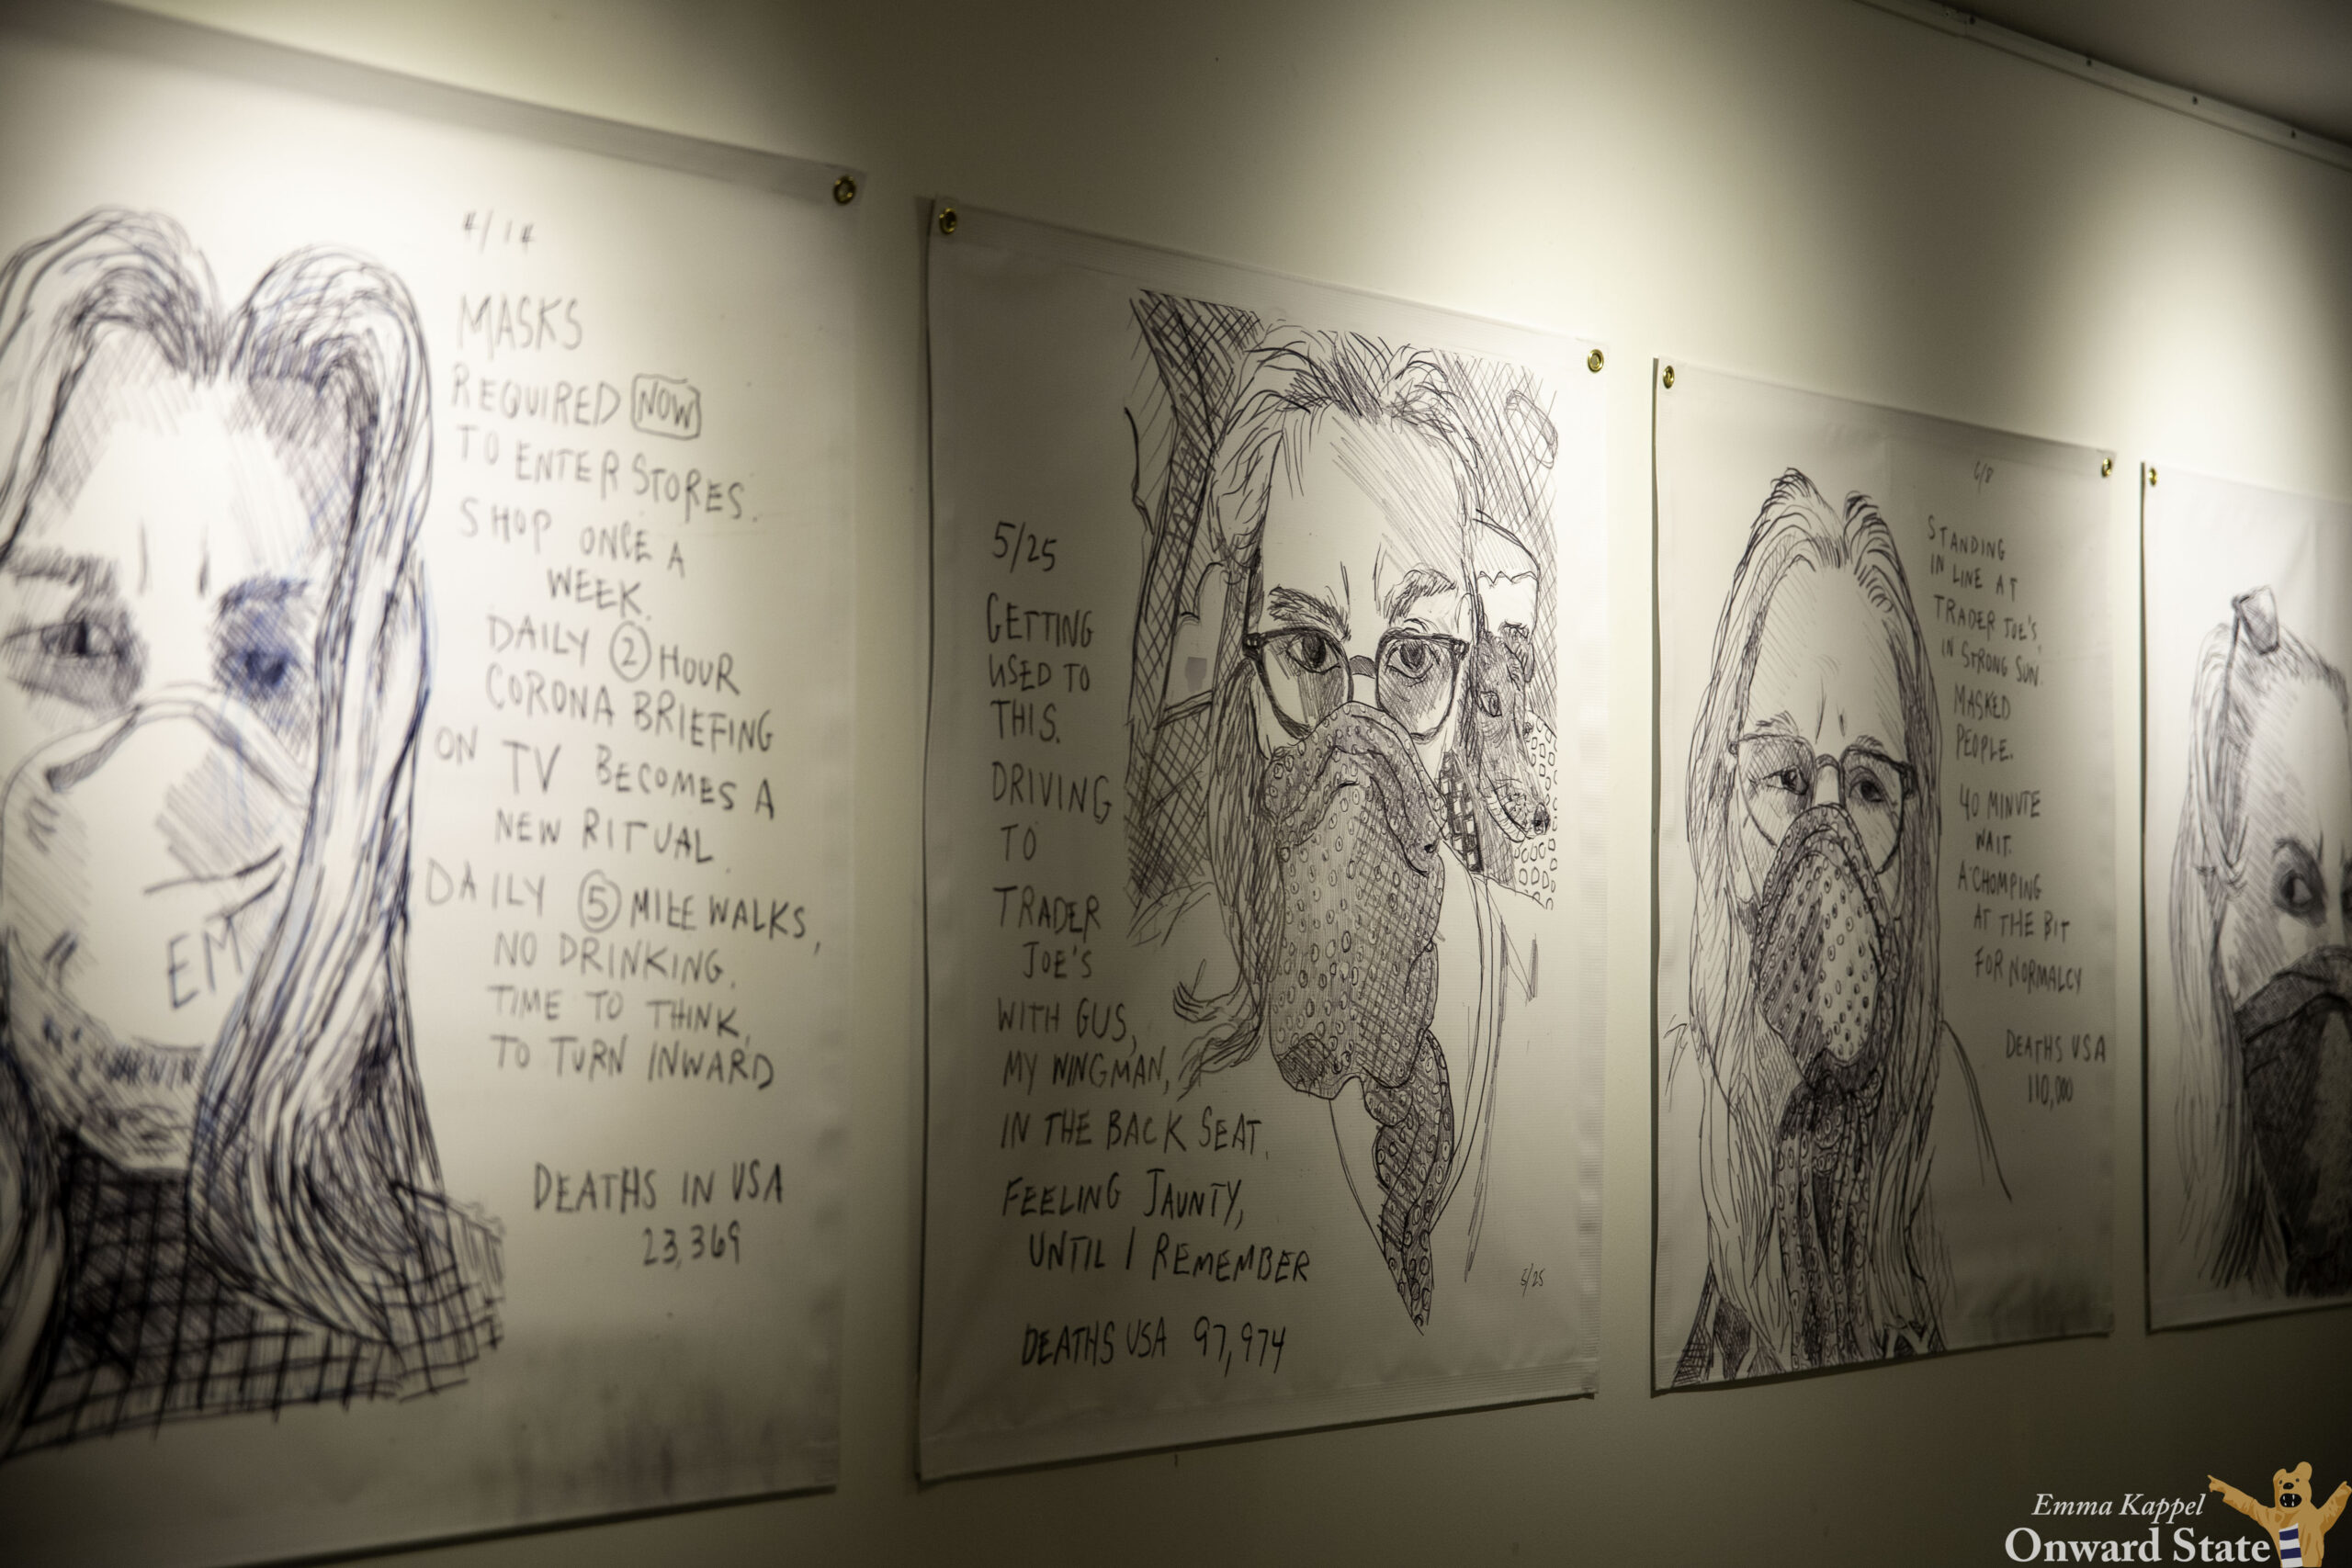 4/14
MASKS
REQUIRED NOW
TO ENTER STORES.
SHOP ONCE A
WEEK.
DAILY 2 HOUR
CORONA BRIEFING
ON TV BECOMES A
NEW RITUAL.
DAILY 5 MILE WALKS,
NO DRINKING.
TIME TO THINK,
TO TURN INWARD
DEATHS IN USA
23,369
EM
WARNIN
5/25
GETTING
USED TO
THIS.
DRIVING
TO
TRADER
JOE'S
WITH GUS,
MY WINGMAN,
IN THE BACK SEAT.
FEELING JAUNTY,
UNTIL I REMEMBER
DEATHS USA 97,974
5/25
6/8
STANDING
IN LINE AT
TRADER JOE'S,
IN STRONG SUN.
MASKED
PEOPLE.
40 MINUTE
WAIT.
A'CHOMPING
AT THE BIT
FOR NORMALCY
DEATHS USA
110,000
Emma Kappel
Onward State